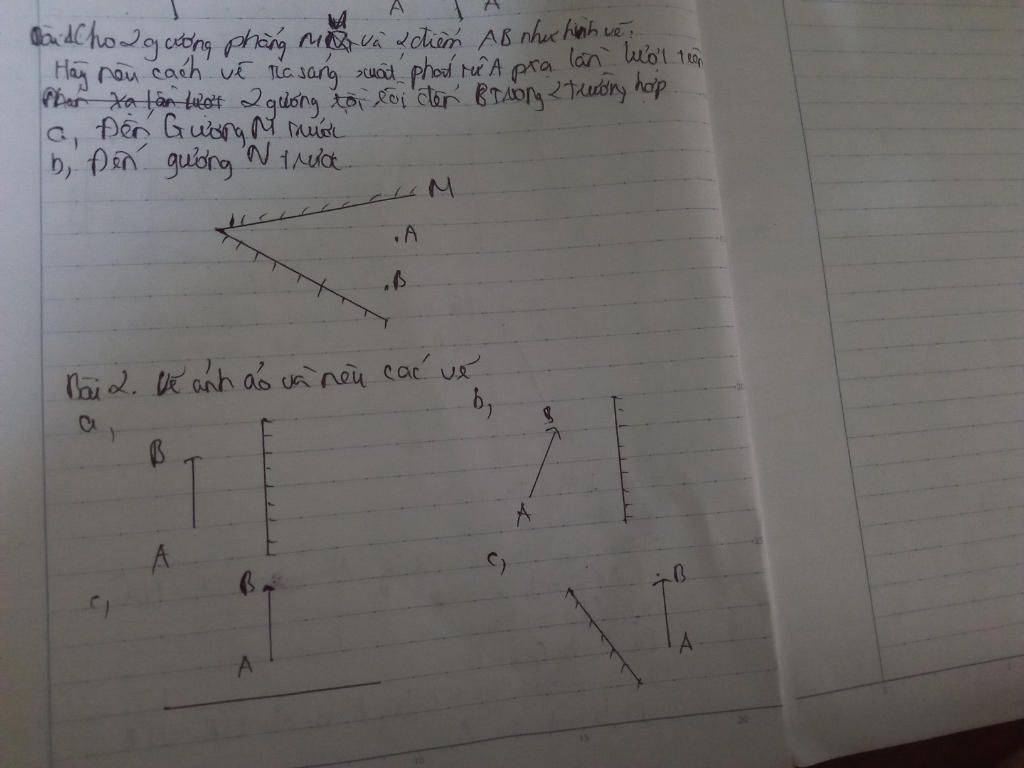 A A
Bài 1 Cho 2 gương phẳng M N và 2 điểm AB như hình vẽ.
Hãy nêu cách vẽ tia sáng xuất phát từ A pxạ lần lượt trên
phản xạ lần lượt 2 gương rồi đến B trong 2 trường hợp
a, Đến Gương M trước
b, Đến gương N trước
M
A
B
Bài 2. Vẽ ảnh ảo và nêu các vẽ
a, b,
B B
A A
c, c,
B B
A A